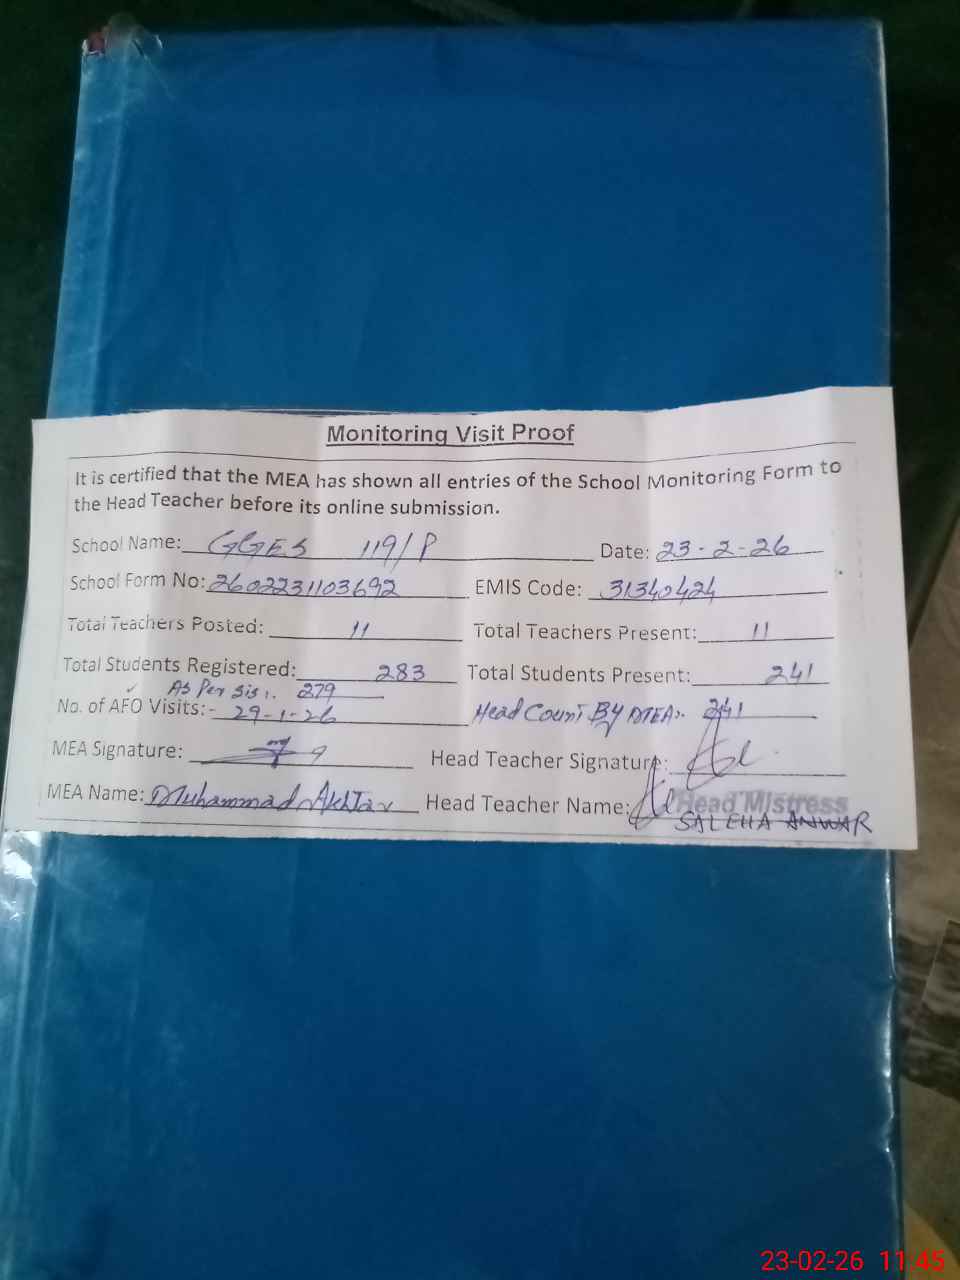 Monitoring Visit Proof
It is certified that the MEA has shown all entries of the School Monitoring Form to
the Head Teacher before its online submission.
School Name: GGES 119/P Date: 23-2-26
School Form No: 2602231103692 EMIS Code: 31340424
Total Teachers Posted: 11 Total Teachers Present: 11
Total Students Registered: 283 Total Students Present: 241
As Per Sis:. 279
No. of AFO Visits:- 29-1-26 Head Count By MEA:. 241
MEA Signature: Head Teacher Signature:
MEA Name: Muhammad Akhtar Head Teacher Name: Head Mistress
SALEHA ANWAR
23-02-26 11:45